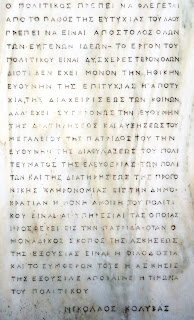 Ο ΠΟΛΙΤΙΚΟΣ ΠΡΕΠΕΙ ΝΑ ΦΛΕΓΕΤΑΙ
ΑΠΟ ΤΟ ΠΑΘΟΣ ΤΗΣ ΕΥΤΥΧΙΑΣ ΤΟΥ ΛΑΟΥ
ΠΡΕΠΕΙ ΝΑ ΕΙΝΑΙ ΑΠΟΣΤΟΛΟΣ ΟΛΩΝ
ΤΩΝ ΕΥΓΕΝΩΝ ΙΔΕΩΝ ΤΟ ΕΡΓΟΝ ΤΟΥ
ΠΟΛΙΤΙΚΟΥ ΕΙΝΑΙ ΔΥΣΧΕΡΕΣΤΕΡΟΝ ΟΛΩΝ
ΔΙΟΤΙ ΔΕΝ ΕΧΕΙ ΜΟΝΟΝ ΤΗΝ ΗΘΙΚΗΝ
ΕΥΘΥΝΗΝ ΤΗΣ ΕΠΙΤΥΧΙΑΣ Η ΑΠΟΤΥ
ΧΙΑΣ ΤΗΣ ΔΙΑΧΕΙΡΙΣΕΩΣ ΤΩΝ ΚΟΙΝΩΝ
ΑΛΛ ΕΧΕΙ ΣΥΓΧΡΟΝΩΣ ΤΗΝ ΕΥΘΥΝΗΝ
ΤΗΣ ΔΙΑΤΗΡΗΣΕΩΣ ΚΑΙ ΑΥΞΗΣΕΩΣ ΤΟΥ
ΜΕΓΑΛΕΙΟΥ ΤΗΣ ΠΑΤΡΙΔΟΣ ΤΟΥ ΤΗΝ
ΕΥΘΥΝΗΝ ΤΗΣ ΔΙΑΦΥΛΑΞΕΩΣ ΤΟΥ ΠΟΛΙ
ΤΕΥΜΑΤΟΣ ΤΗΣ ΕΛΕΥΘΕΡΙΑΣ ΤΩΝ ΠΟΛΙ
ΤΩΝ ΚΑΙ ΤΗΣ ΔΙΑΤΗΡΗΣΕΩΣ ΤΗΣ ΠΡΟΓΟ
ΝΙΚΗΣ ΚΛΗΡΟΝΟΜΙΑΣ ΕΙΣ ΤΗΝ ΔΗΜΟ
ΚΡΑΤΙΑΝ Η ΜΟΝΗ ΑΜΟΙΒΗ ΤΟΥ ΠΟΛΙΤΙ
ΚΟΥ ΕΙΝΑΙ ΑΙ ΥΠΗΡΕΣΙΑΙ ΤΑΣ ΟΠΟΙΑΣ
ΠΡΟΣΦΕΡΕΙ ΕΙΣ ΤΗΝ ΠΑΤΡΙΔΑ ΟΤΑΝ Ο
ΜΟΝΑΔΙΚΟΣ ΣΚΟΠΟΣ ΤΗΣ ΑΣΚΗΣΕΩΣ
ΤΗΣ ΕΞΟΥΣΙΑΣ ΕΙΝΑΙ Η ΦΙΛΟΔΟΞΙΑ
ΚΑΙ ΤΟ ΣΥΜΦΕΡΟΝ ΤΟΤΕ Η ΑΣΚΗΣΙΣ
ΤΗΣ ΕΞΟΥΣΙΑΣ ΑΠΟΒΑΙΝΕΙ Η ΤΙΜΩΡΙΑ
ΤΟΥ ΠΟΛΙΤΙΚΟΥ
ΝΙΚΟΛΑΟΣ ΚΟΛΥΒΑΣ